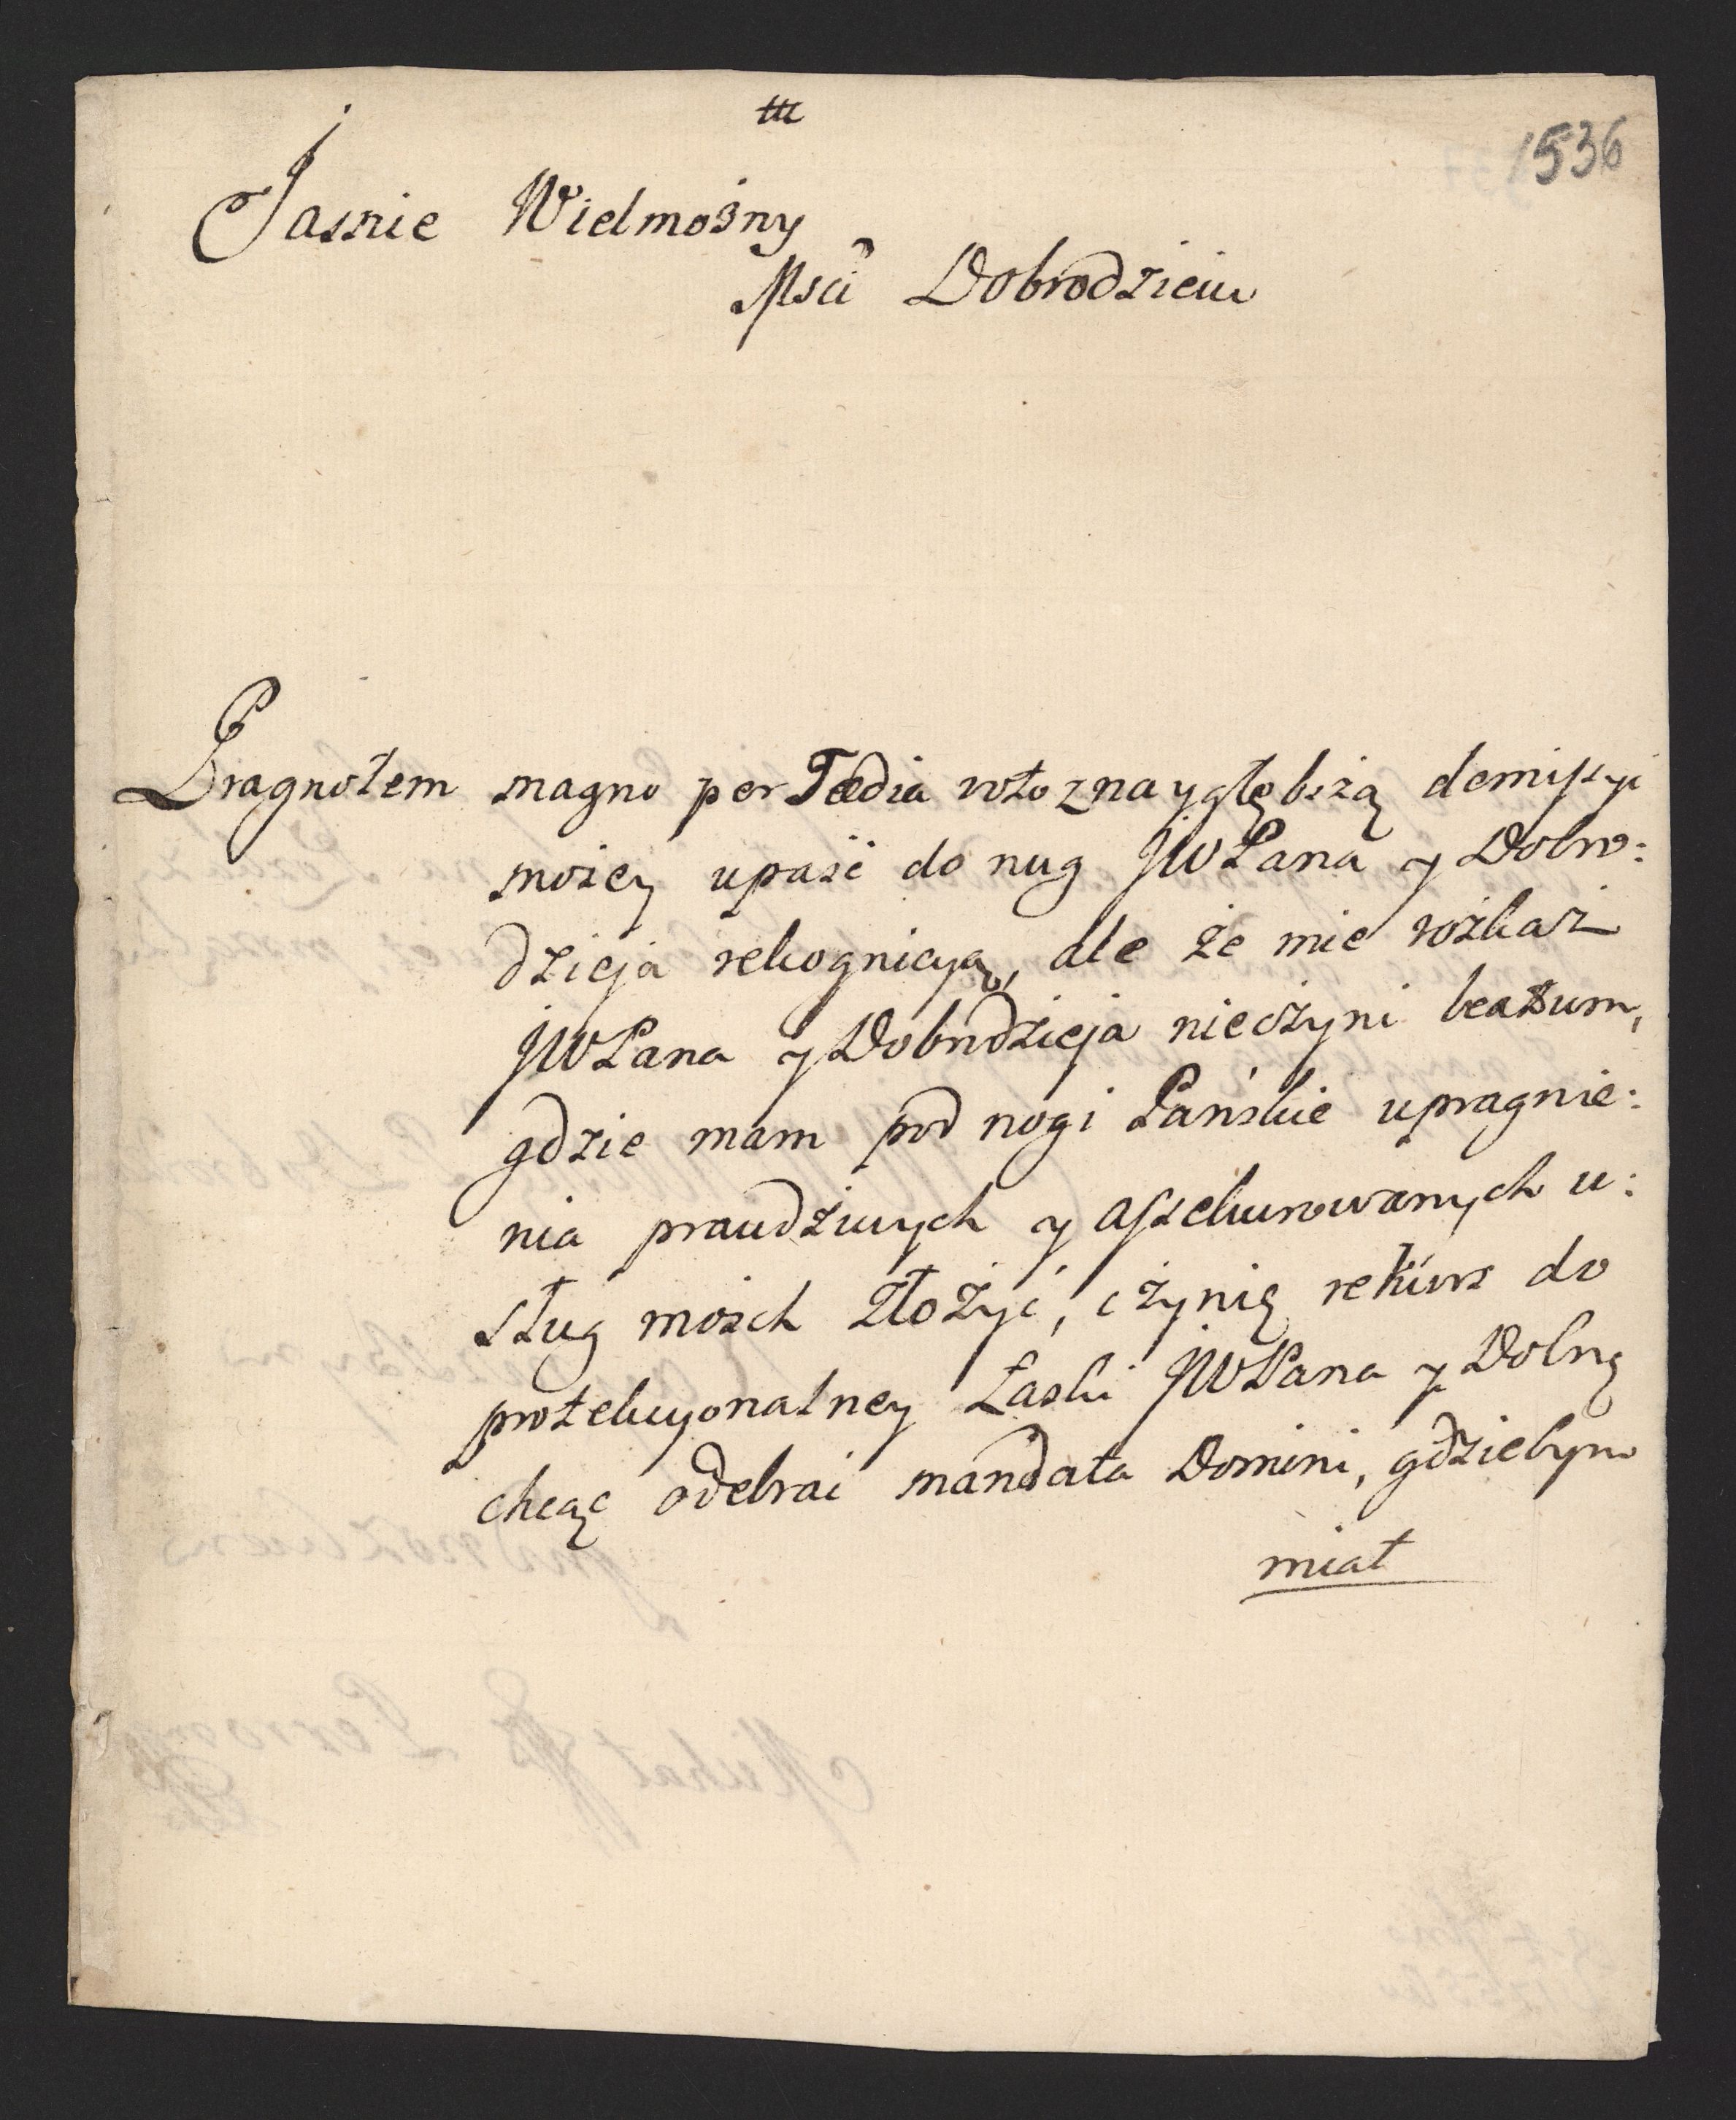 1536
Jasnie Wielmożny
Msci Dobrodzieiu
Pragnołem magno per Tædia voto z naygłębszą demissyi
moiey upaść do nug JWPana y Dobro:
dzieja rekognicyą, ale że mie rozkaz
JWPana y Dobrodzieja nieczyni beatum,
gdzie mam pod nogi Pańskie upragnie:
nia prawdziwych y aszekurowanych u:
sług moich złożyć, czynię rekurs do
protekcyonalney Łaski JWPana y Dobrę
chcąc odebrać mandata Domini, gdziebym
miał